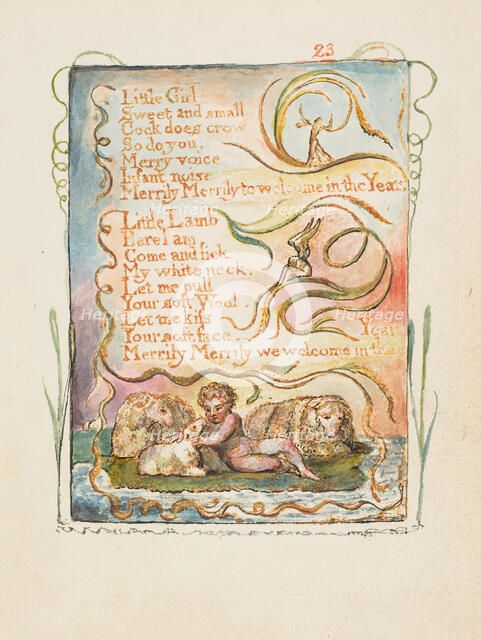 23
Little Girl
Sweet and small
Cock does crow
So do you.
Merry voice
Infant noise
Merrily Merrily to welcome in the Year
Little Lamb
Here I am,
Come and lick
My white neck.
Let me pull
Your soft Wool.
Let me kiss
Your soft face.
Merrily Merrily we welcome in the
Year
Heritage
Heritage
Heritage
Heritage
Heritage
Heritage